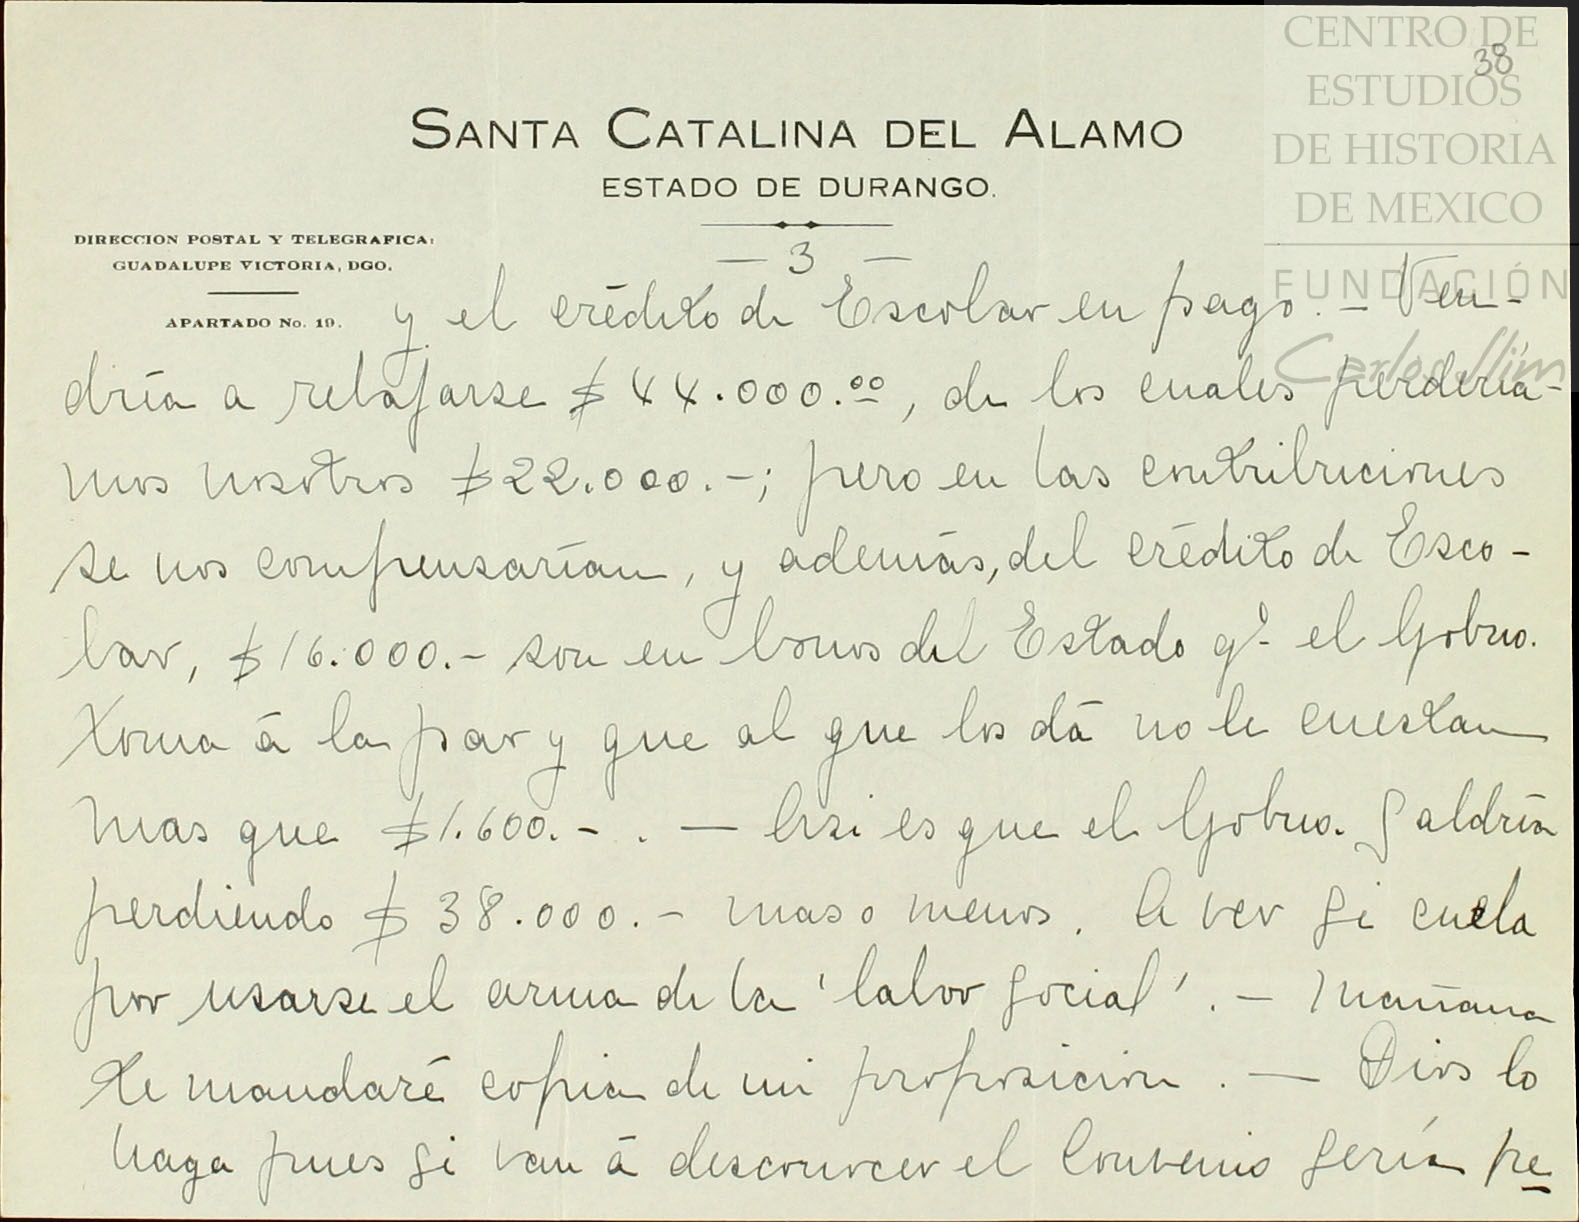 CENTRO DE
ESTUDIOS
DE HISTORIA
DE MEXICO
FUNDACIÓN
Carlos Slim
38
SANTA CATALINA DEL ALAMO
ESTADO DE DURANGO.
DIRECCION POSTAL Y TELEGRAFICA:
GUADALUPE VICTORIA, DGO.
APARTADO No. 19.
— 3 —
y el crédito de Escobar en pago. – Ven-
dría a rebajarse $ 44.000.00, de los cuales perdería-
mos nosotros $22.000.-; pero en las contribuciones
se nos compensarían, y además, del crédito de Esco-
bar, $16.000.- son en bonos del Estado q̃ el Gobno.
toma á la par y que al que los dá no le cuestan
mas que $1.600.- . — Asi es que el Gobno. Saldría
perdiendo $ 38.000.- mas o menos. A ver si cuela
por usarse el arma de la 'labor social'. – Mañana
te mandaré copia de mi proposicion. — Dios lo
haga pues si van á desconocer el Convenio sería pe